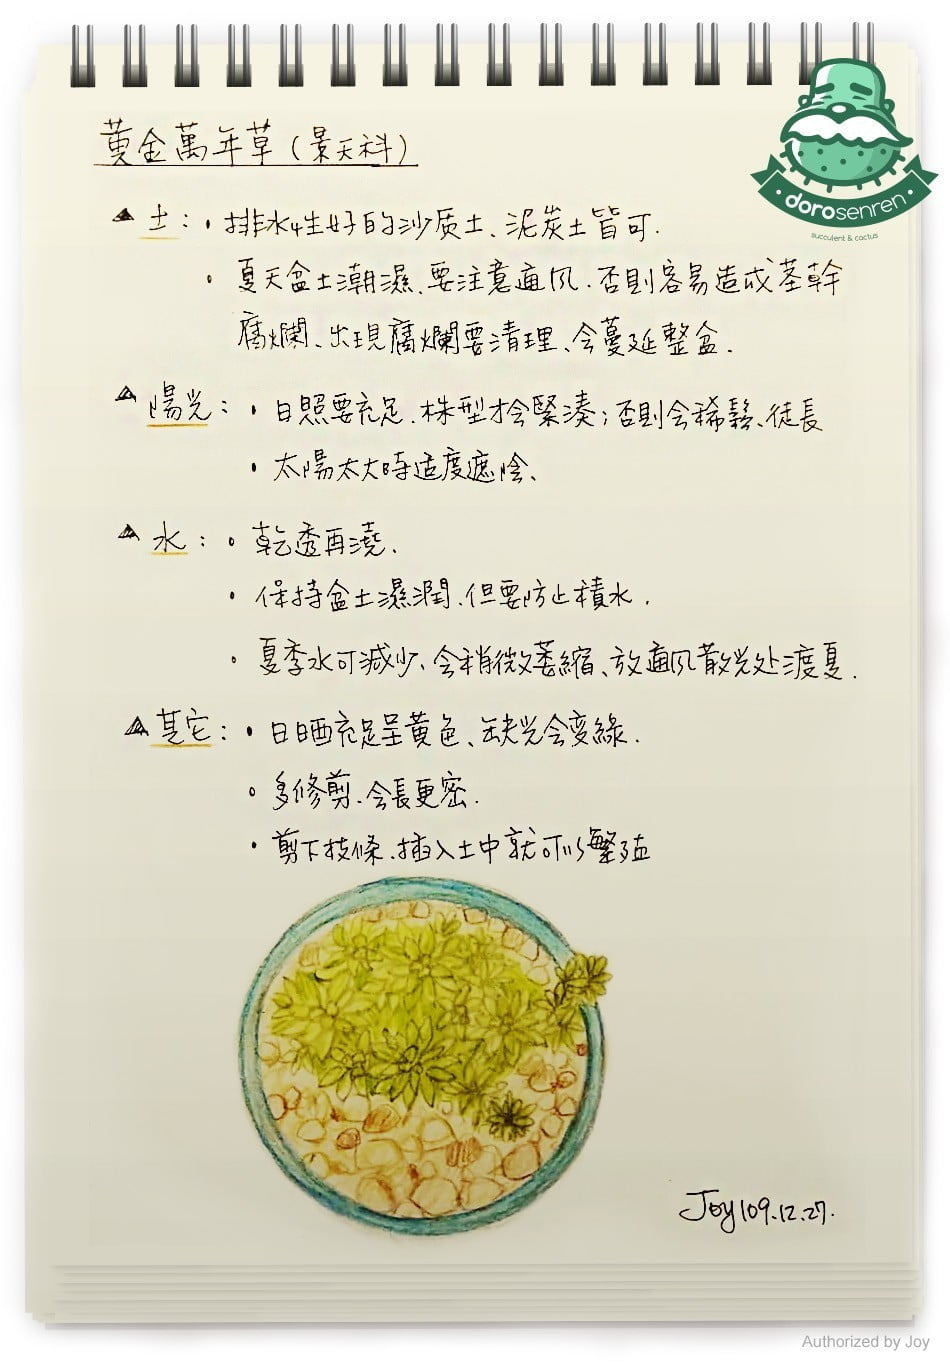 黃金萬年草(景天科)
dorosenren
succulent & cactus
土:・排水性好的沙质土、泥炭土皆可.
・夏天盆土潮濕、要注意通风.否則容易造成莖幹
腐爛、出現腐爛要清理、会蔓延整盆.
陽光:・日照要充足.株型才会緊湊;否則会稀鬆、徒長
・太陽太大時适度遮陰、
水:・乾透再澆.
・保持盆土濕潤、但要防止積水.
・夏季水可減少、会稍微萎縮、放通风散光处渡夏.
其它:・日晒充足呈黃色、缺光会变綠.
・多修剪.会長更密.
・剪下枝條.插入土中就可以繁殖
Joy 109.12.27.
Authorized by Joy